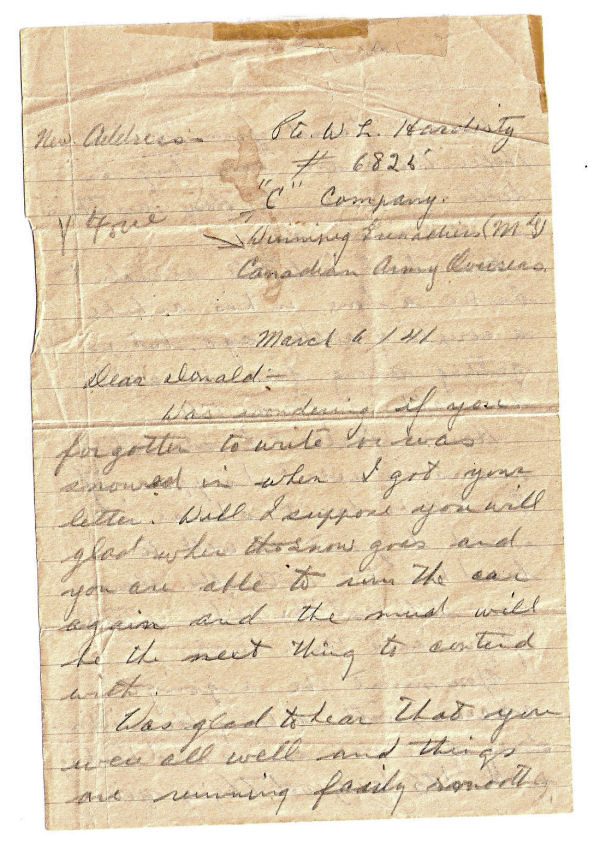 New Address:- Pte. W. L. Hardisty
# 6825
"C" Company.
Winnipeg Grenadiers (M.G)
Canadian Army Overseas.
March 6 / 41
Dear Donald:-
Was wondering if you
forgotter to write or was
snowed in when I got your
letter. Well I suppose you will
glad when the snow goes and
you are able to run the car
again and the mud will
be the next thing to contend
with.
Was glad to hear that you
were all well and things
are running fairly smoothly